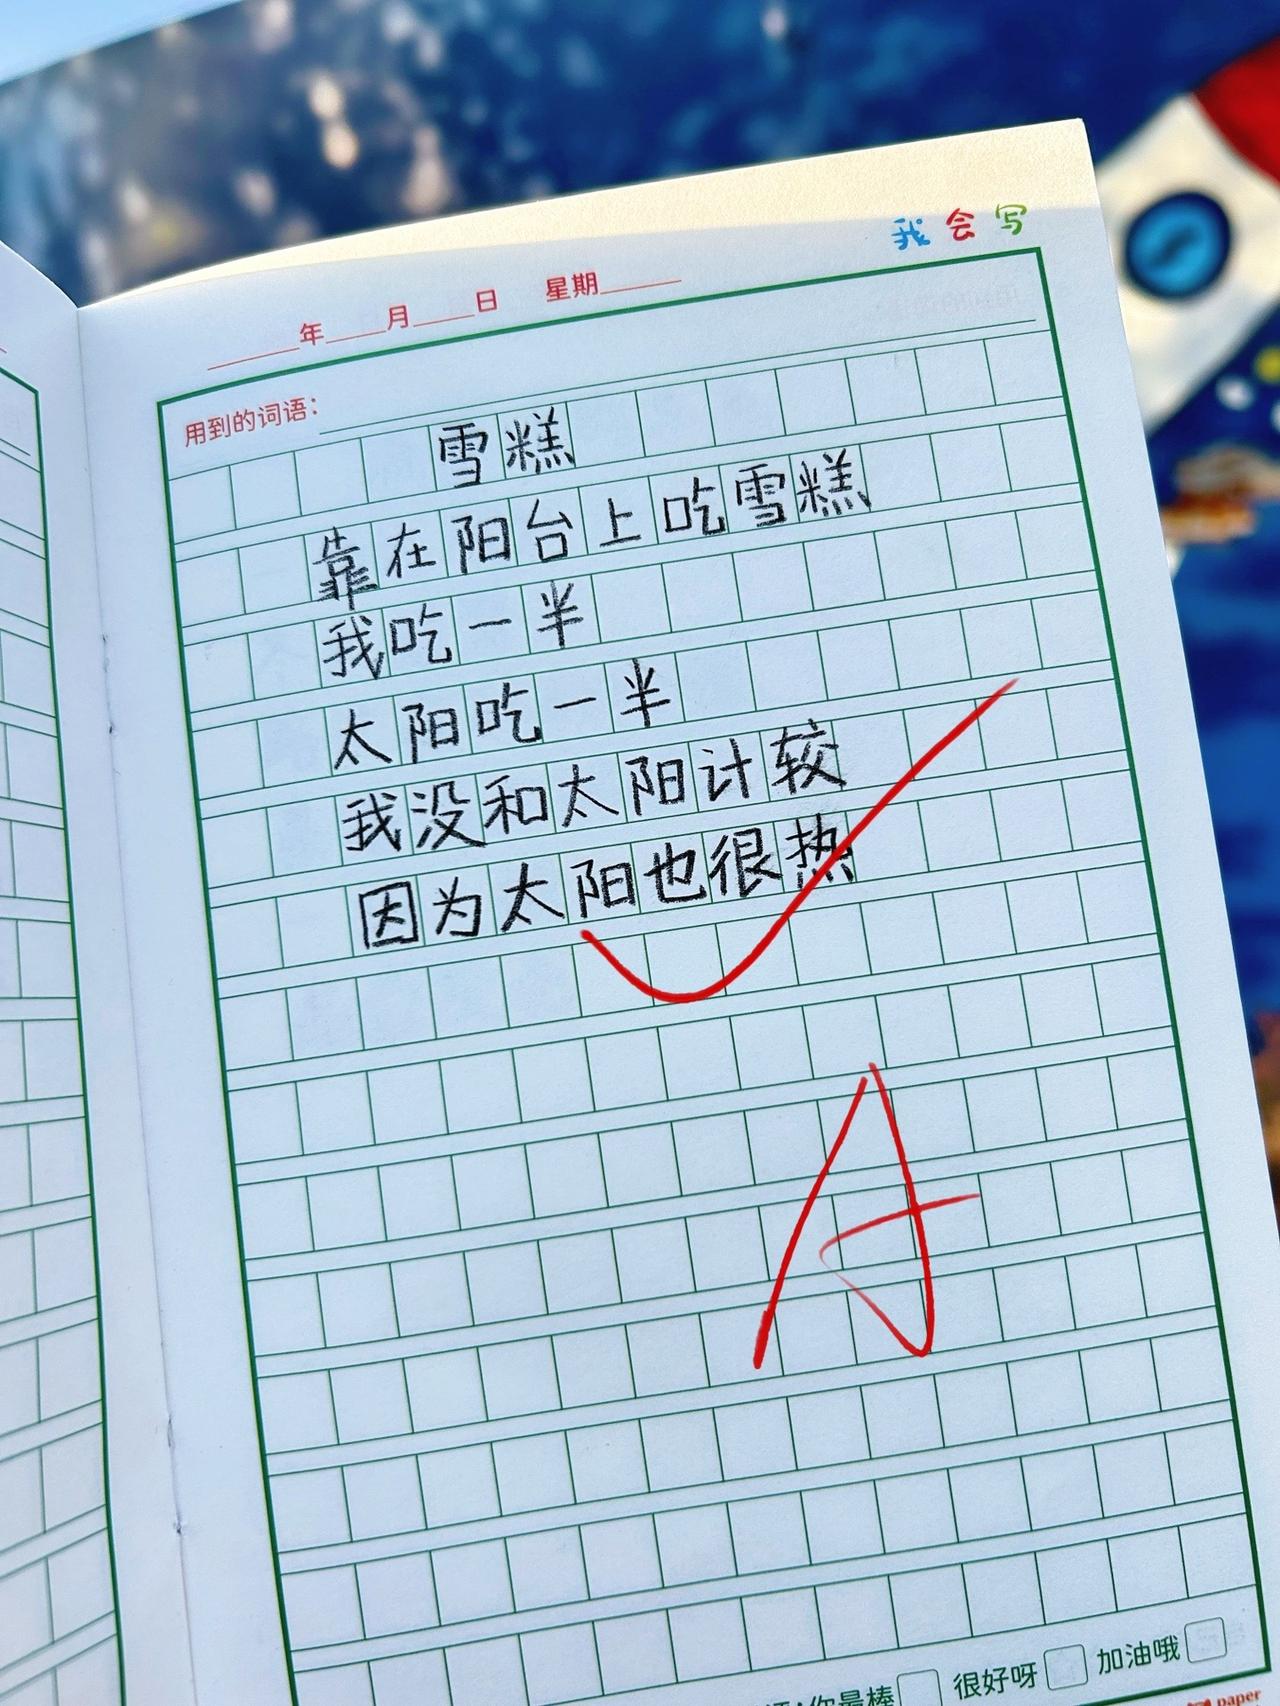 我会写
年 月 日 星期
用到的词语：
雪糕
靠在阳台上吃雪糕
我吃一半
太阳吃一半
我没和太阳计较
因为太阳也很热
A
你最棒 很好呀 加油哦
paper